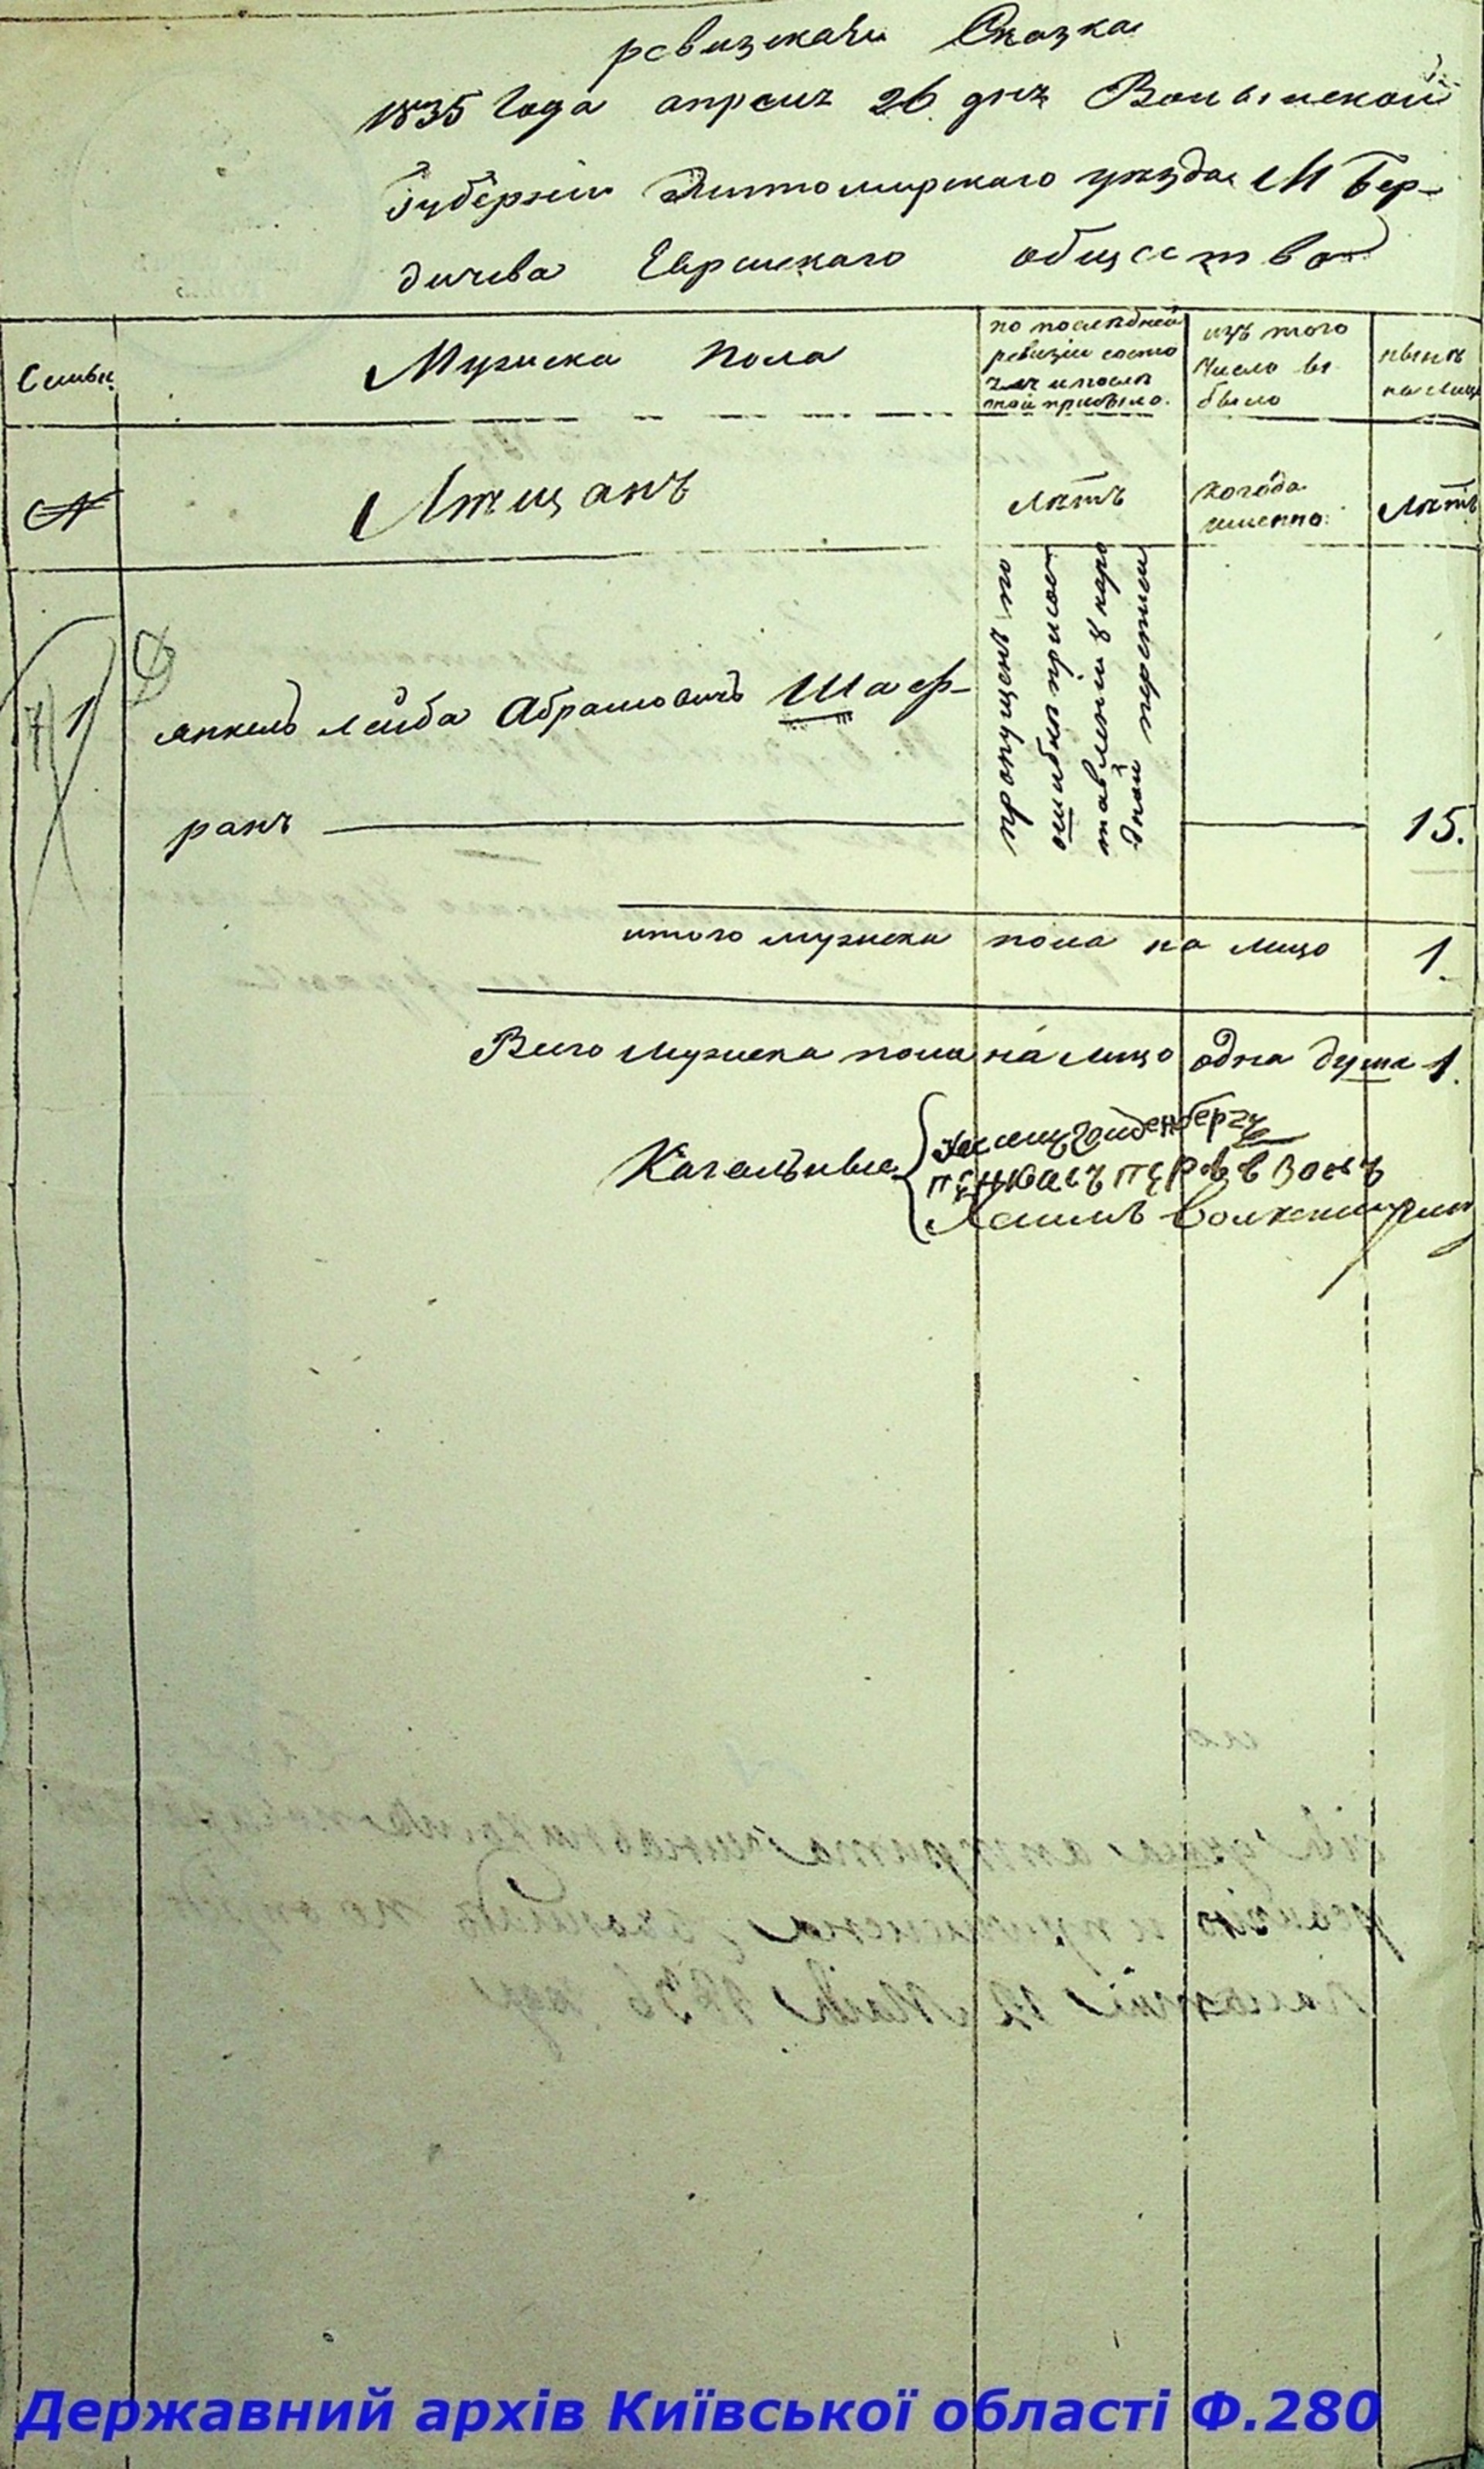 ревизская Сказка
1835 Года апреля 26 дня Волынской
Губернии Житомирскаго уезда М Бер-
дичева Еврейскаго общества
Семьи
Мужеска Пола
по последней
ревизии состо
ял и после
оной прибыло.
изъ того
Число вы
было
ныне
на лицо
№
Мещанъ
Летъ
когода
именно
Летъ
1
Янкель Лейба Абрамовичъ Шаф-
ранъ
пропущенъ по
ошибки при сос
тавлении 8 наро
дной переписи
15.
итого мужеска пола на лицо 1.
Всего мужеска пола на лицо одна душа 1.
Кагальные
Державний архів Київської області Ф.280